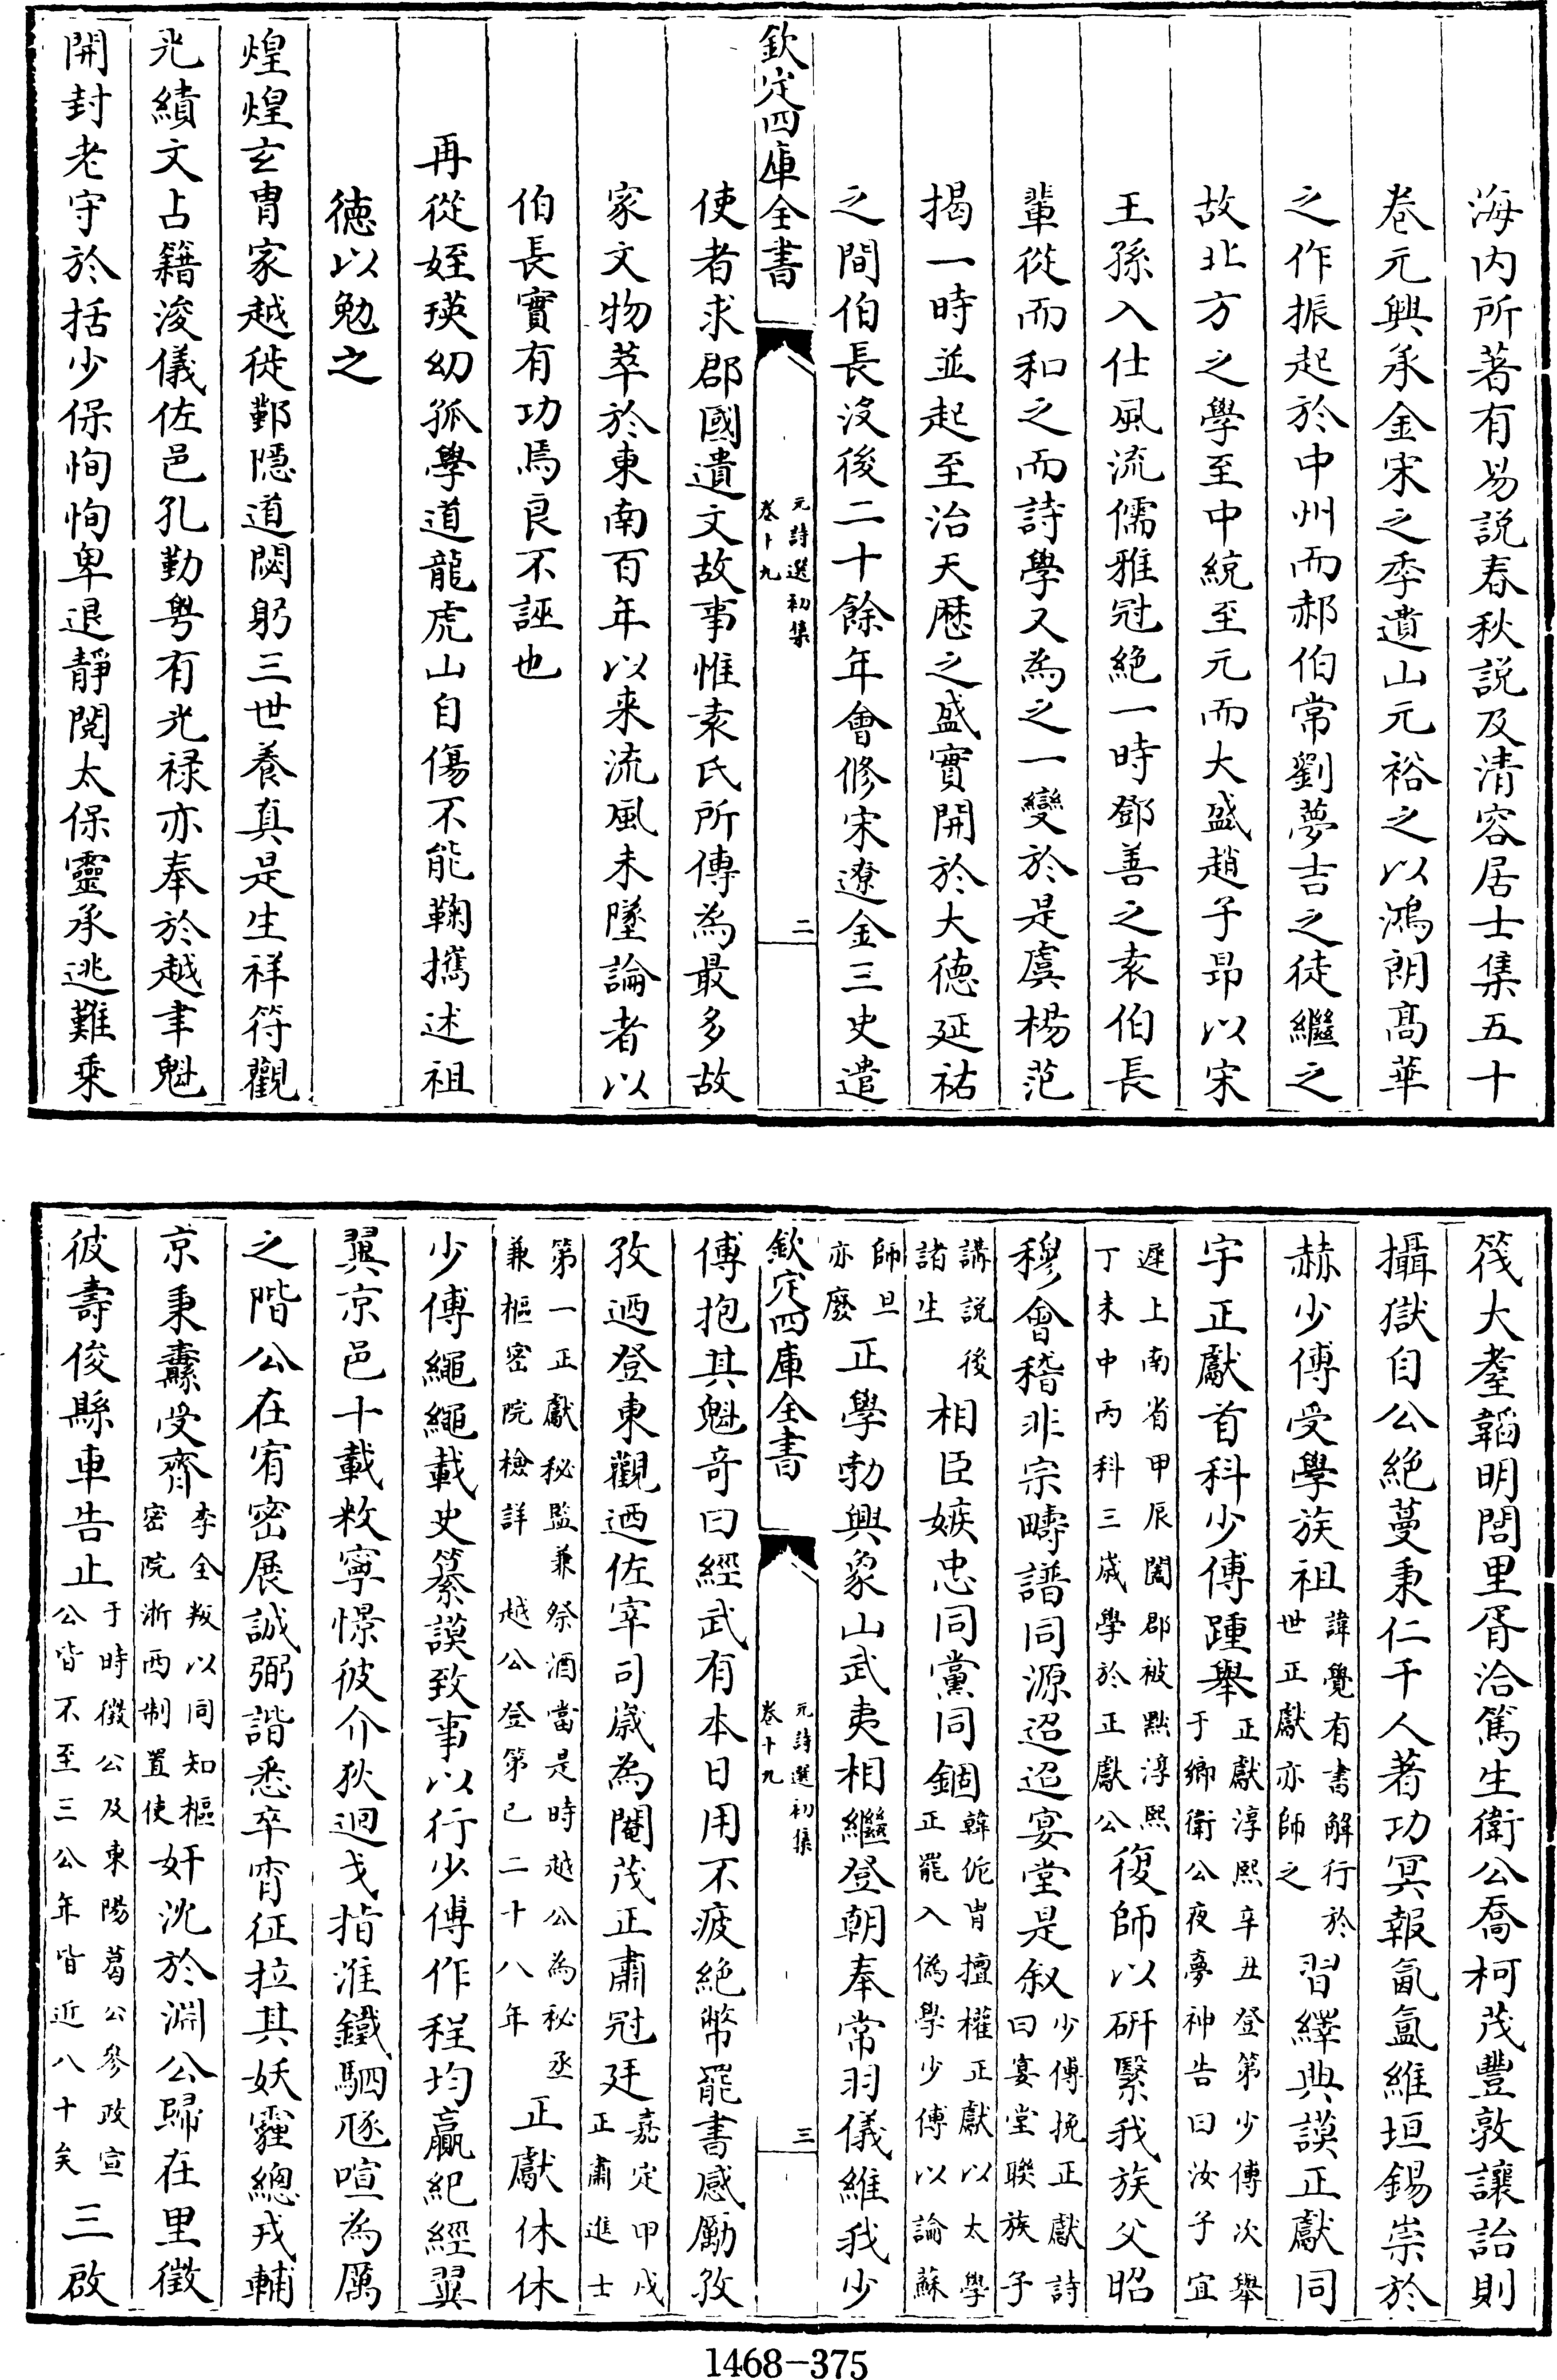 海内所著有易説春秋説及清容居士集五十
卷元興承金宋之季遺山元裕之以鴻朗髙華
之作振起於中州而郝伯常劉夢吉之徒繼之
故北方之學至中統至元而大盛趙子昂以宋
王孫入仕風流儒雅冠絶一時鄧善之袁伯長
輩從而和之而詩學又為之一變於是虞楊范
揭一時並起至治天厯之盛實開於大徳延祐
之間伯長沒後二十餘年㑹修宋遼金三史遣
欽定四庫全書
元詩選初集
卷十九
二
使者求郡國遺文故事惟袁氏所傳為最多故
家文物萃於東南百年以來流風未墜論者以
伯長實有功焉良不誣也
再從姪瑛幼孤學道龍虎山自傷不能鞠攜述祖
徳以勉之
煌煌玄胄家越徙鄞隠道閟躬三世養真是生祥符觀
光績文占籍浚儀佐邑孔勤粤有光禄亦奉於越聿魁
開封老守於括少保恂恂卑退靜閱太保靈承逃難乘
筏大羣韜明閭里胥洽篤生衛公喬柯茂豐敦讓詒則
攝獄自公絶蔓秉仁千人著功冥報氤氳維垣錫崇於
赫少傅受學族祖諱覺有書解行於
世正獻亦師之習繹典謨正獻同
宇正獻首科少傅踵舉正獻淳熙辛丑登第少傅次舉
于鄉衛公夜夢神告曰汝子宜
遲上南省甲辰闔郡被㸃淳熙
丁未中丙科三歳學於正獻公復師以硏繄我族父昭
穆㑹稽非宗疇譜同源迢迢宴堂是叙少傅挽正獻詩
曰宴堂聨族子
講説後
諸生相臣嫉忠同黨同錮韓侂胄擅權正獻以太學
正罷入偽學少傅以論蘇
師旦
亦廢正學勃興象山武夷相繼登朝奉常羽儀維我少
欽定四庫全書
元詩選初集
卷十九
三
傅抱其魁奇曰經武有本日用不疲絶幣罷書感勵孜
孜迺登東觀迺佐宰司歳為閹茂正肅冠廷嘉定甲戌
正肅進士
第一正獻秘監兼祭酒當是時越公為秘丞
兼樞密院檢詳 越公登第已二十八年正獻休休
少傅繩繩載史纂謨致事以行少傅作程均贏紀經翼
翼京邑十載敉寧憬彼介狄迴戈指淮鐵駟豗喧為厲
之階公在宥密展誠弼諧悉卒宵征拉其妖霾總戎輔
京秉纛受齊李全叛以同知樞
密院浙西制置使奸沈於淵公歸在里徵
彼壽俊縣車告止于時徵公及東陽葛公參政宣
公皆不至三公年皆近八十矣三啟
1468-375